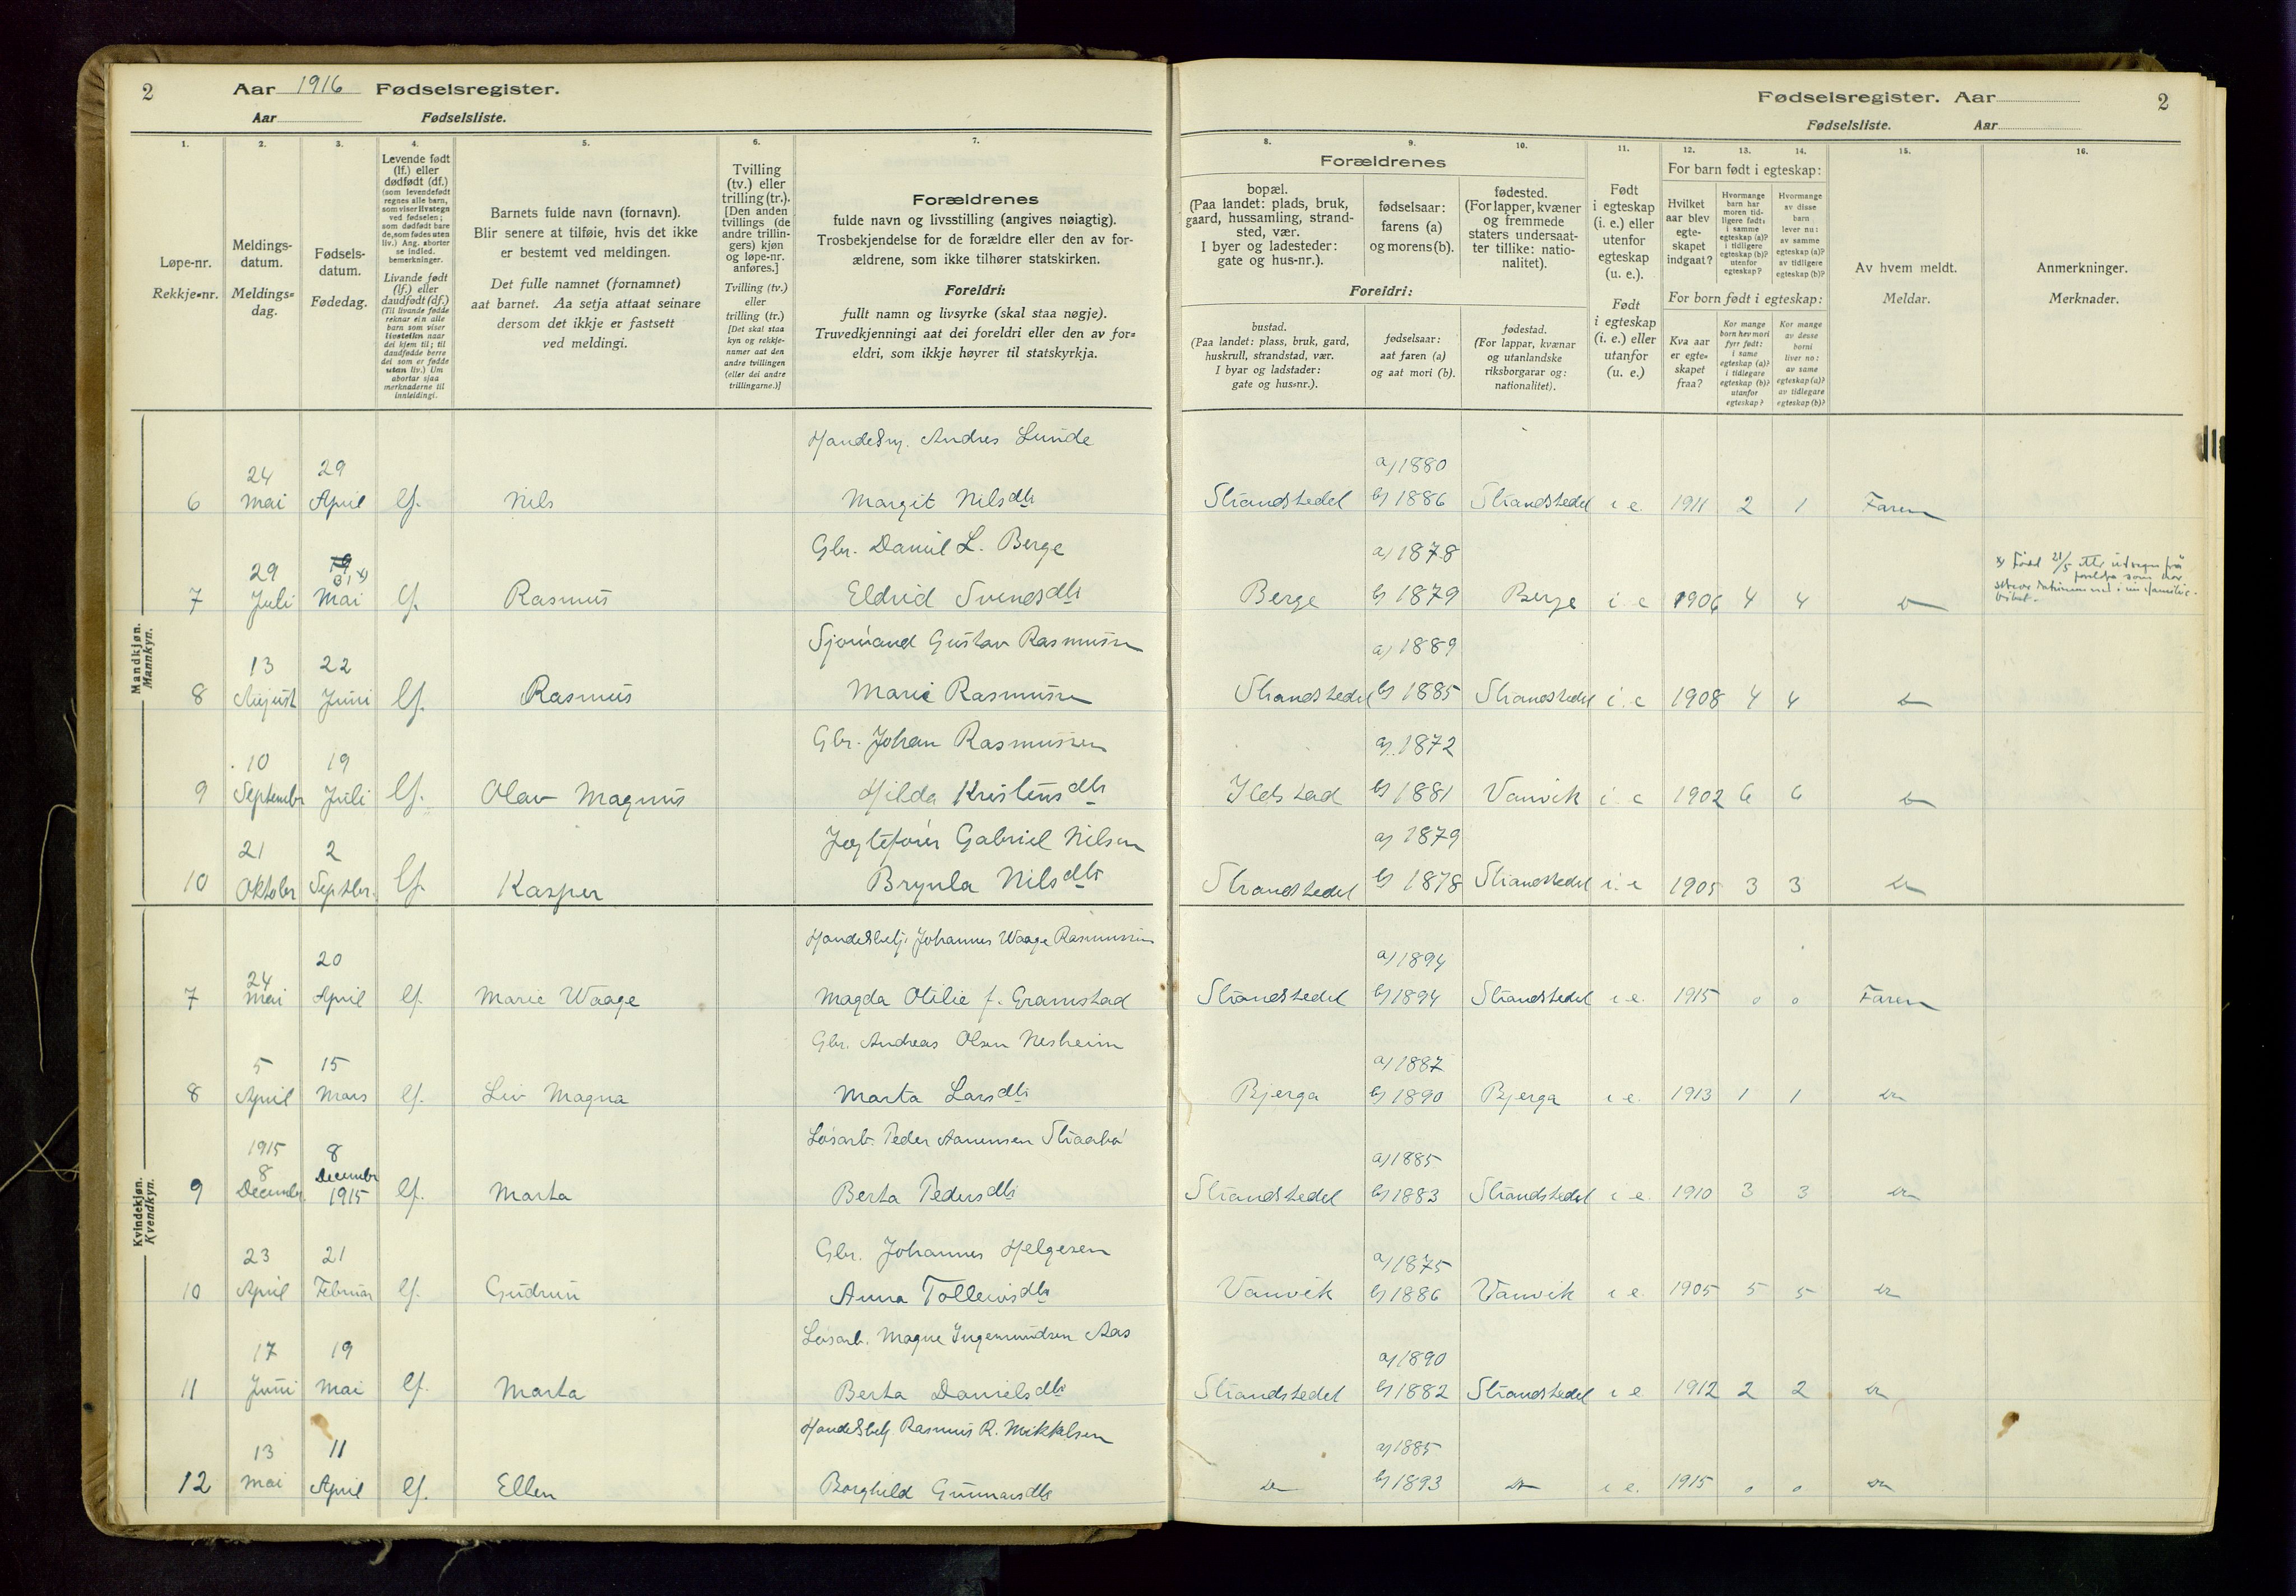 2 Aar 1916 Fødselsregister.
Aar Fødselsliste.
Fødselsregister. Aar 2
Fødselsliste. Aar
1. 2. 3. 4. 5. 6. 7.
Løpe-nr.
Rekkje-nr.
Meldings-
datum.
Meldings-
dag.
Fødsels-
datum.
Fødedag.
Levende født
(lf.) eller
dødfødt (df.)
(som levendefødt
regnes alle barn,
som viser livstegn
ved fødselen;
som dødfødt bare
de, som fødes uten
liv.) Ang. aborter
se indled.
bemerkninger.
Livande født
(lf.) eller
daudfødt (df.)
(Til livande fødde
reknar ein alle
born som viser
livsteikn naar
dei kjem til; til
daudfødde berre
dei som er fødde
utan liv.) Um
abortar sjaa
merknaderne til
innleidingi.
Barnets fulde navn (fornavn).
Blir senere at tilføie, hvis det ikke
er bestemt ved meldingen.
Det fulle namnet (fornamnet)
aat barnet. Aa setja attaat seinare
dersom det ikkje er fastsett
ved meldingi.
Tvilling
(tv.) eller
trilling (tr.).
[Den anden
tvillings (de
andre trillin-
gers) kjøn
og løpe-nr.
anføres.]
Tvilling (tv.)
eller
trilling (tr.)
[Det skal staa
kyn og rekkje-
numer aat den
andre tvillingen
(eller dei andre
trillingarne.)]
Forældrenes
fulde navn og livsstilling (angives nøiagtig).
Trosbekjendelse for de forældre eller den av for-
ældrene, som ikke tilhører statskirken.
Foreldri:
fullt namn og livsyrke (skal staa nøgje).
Truvedkjenningi aat dei foreldri eller den av for-
eldri, som ikkje høyrer til statskyrkja.
8. 9. 10. 11. 12. 13. 14. 15. 16.
Forældrenes
bopæl.
(Paa landet: plads, bruk,
gaard, hussamling, strand-
sted, vær.
I byer og ladesteder:
gate og hus-nr.).
fødselsaar:
farens (a)
og morens (b).
fødested.
(For lapper, kvæner
og fremmede
staters undersaat-
ter tillike: natio-
nalitet).
Foreldri:
bustad.
(Paa landet: plass, bruk, gard,
huskrull, strandstad, vær.
I byar og ladstader:
gate og hus-nr.).
fødselsaar:
aat faren (a)
og aat mori (b).
fødestad.
(For lappar, kvænar
og utanlandske
riksborgarar og:
nationalitet).
Født
i egteskap
(i. e.) eller
utenfor
egteskap
(u. e.).
Født
i egteskap
(i. e.) eller
utanfor
(u. e.)
For barn født i egteskap:
Hvilket
aar blev
egte-
skapet
indgaat?
Hvormange
barn har
moren tid-
ligere født:
i samme
egteskap (a)?
i tidligere
egteskap (b)?
utenfor
egteskap?
Hvormange
av disse
barn
lever nu:
av samme
egteskap (a)?
av tidligere
egteskap (b)?
For born født i egteskap:
Kva aar
er egte-
skapet
fraa?
Kor mange
born hev mori
fyrr født:
i same
egteskap (a)?
i tidlegare
egteskap (b)?
utanfor
egteskap?
Kor mange
av desse
borni
liver no:
av same
egteskap (a)?
av tidlegare
egteskap (b)?
Av hvem meldt.
Meldar.
Anmerkninger.
Merknader.
Mandkjøn.
Mannkyn.
Handelsm. Andres Lunde
24 29 a) 1880
6 Mai April lf. Nils Margit Nilsdtr Strandstedet b) 1886 Strandstedet i e. 1911 2 1 Faren
Gbr. Daniel L. Berge a) 1878
29 19 31 x)
7 Juli Mai lf. Rasmus Eldrid Svendsdtr Berge b) 1879 Berge i. e 1906 4 4 do
x) Født 21/5 etter
Sjømand Gustav Rasmussen a) 1889
13 22
8 August Juni lf. Rasmus Marie Rasmussen Strandstedet b) 1885 Strandstedet i. e 1908 4 4 do
Gbr. Johan Rasmussen a) 1872
10 19
9 Septembr Juli lf. Olav Magnus Hilda Kristensdtr b) 1881 Vanvik i. e 1902 6 6 do
Jægtefører Gabriel Nilsen a) 1879
21 2
10 Oktober Septbr. lf. Kasper Brynla Nilsdtr Strandstedet b) 1878 Strandstedet i. e 1905 3 3 do
Kvindekjøn.
Kvendkyn.
Handelsbetj. Johannes Waage Rasmussen
24 20 a) 1894
7 Mai April lf. Marie Waage Magda Otilie f. Gramstad Strandstedet b) 1894 Strandstedet i e. 1915 0 0 Faren
Gbr. Andreas Olsen Nesheim
5 15 a) 1887
8 April Mars lf. Liv Magna Marta Larsdtr Bjerga b) 1890 Bjerga i e. 1913 1 1 do
Løsarb. Peder Aanensen Straabø
1915 8 a) 1885
8 Decembr
9 Decembr. 1915 lf. Marta Berta Pedersdtr Strandstedet b) 1883 Strandstedet i e. 1910 3 3 do
Gbr. Johannes Helgesen
23 21 a) 1875
10 April Februar lf. Gudrun Anna Tolleivsdtr Vanvik b) 1886 Vanvik i e. 1905 5 5 do
Løsarb. Magne Ingemundsen Aas
17 19 a) 1890
11 Juni Mai lf. Marta Berta Danielsdtr Strandstedet b) 1882 Strandstedet i e 1912 2 2 do
Handelsbetj. Rasmus R. Mikkelsen
13 11 a) 1885
12 Mai April lf. Ellen Borghild Gunnarsdtr do b) 1893 do i e. 1915 0 0 do